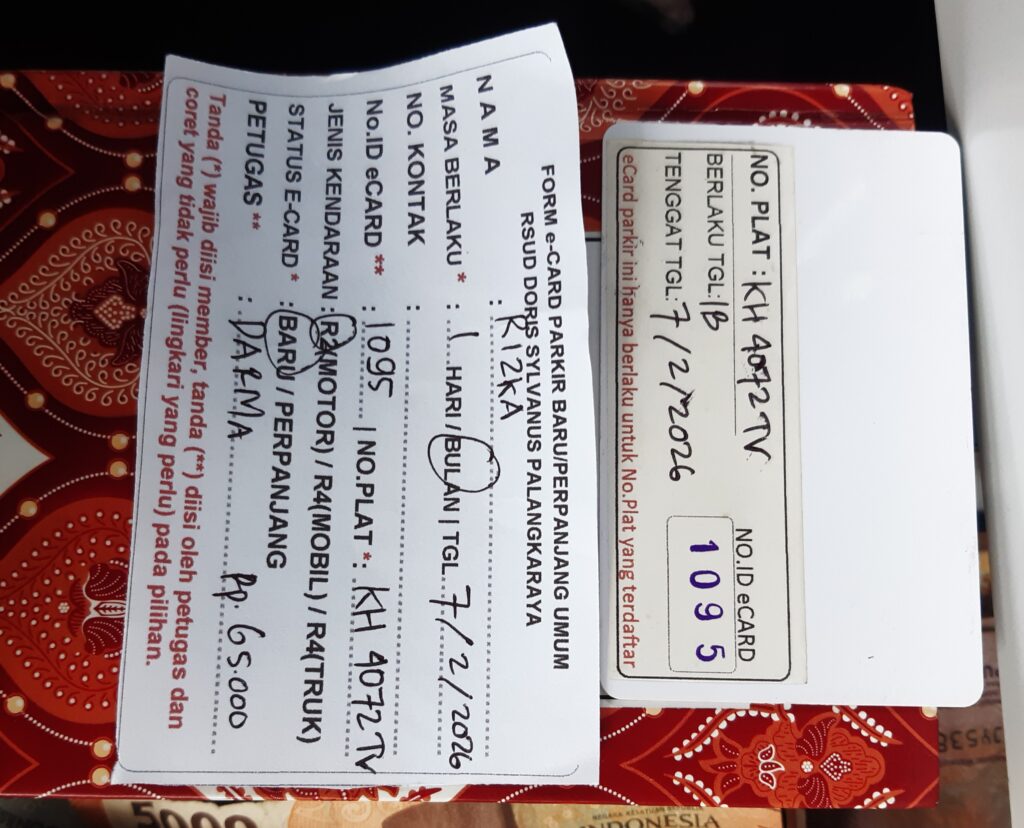 FORM e-CARD PARKIR BARU/PERPANJANG UMUM
RSUD DORIS SYLVANUS PALANGKARAYA
N A M A : RIZKA
MASA BERLAKU * : 1 HARI / BULAN | TGL. 7/2/2026
NO. KONTAK :
No.ID eCARD ** : 1095 | NO.PLAT *: KH 4072 TV
JENIS KENDARAAN : R2(MOTOR) / R4(MOBIL) / R4(TRUK)
STATUS E-CARD * : BARU / PERPANJANG
PETUGAS ** : DARMA Rp. 65.000
Tanda (*) wajib diisi member, tanda (**) diisi oleh petugas dan
coret yang tidak perlu (lingkari yang perlu) pada pilihan.
NO. PLAT : KH 4072 TV
BERLAKU TGL: 1B
TENGGAT TGL: 7/2/2026
NO.ID eCARD
1095
eCard parkir ini hanya berlaku untuk No.Plat yang terdaftar
5000
INDONESIA